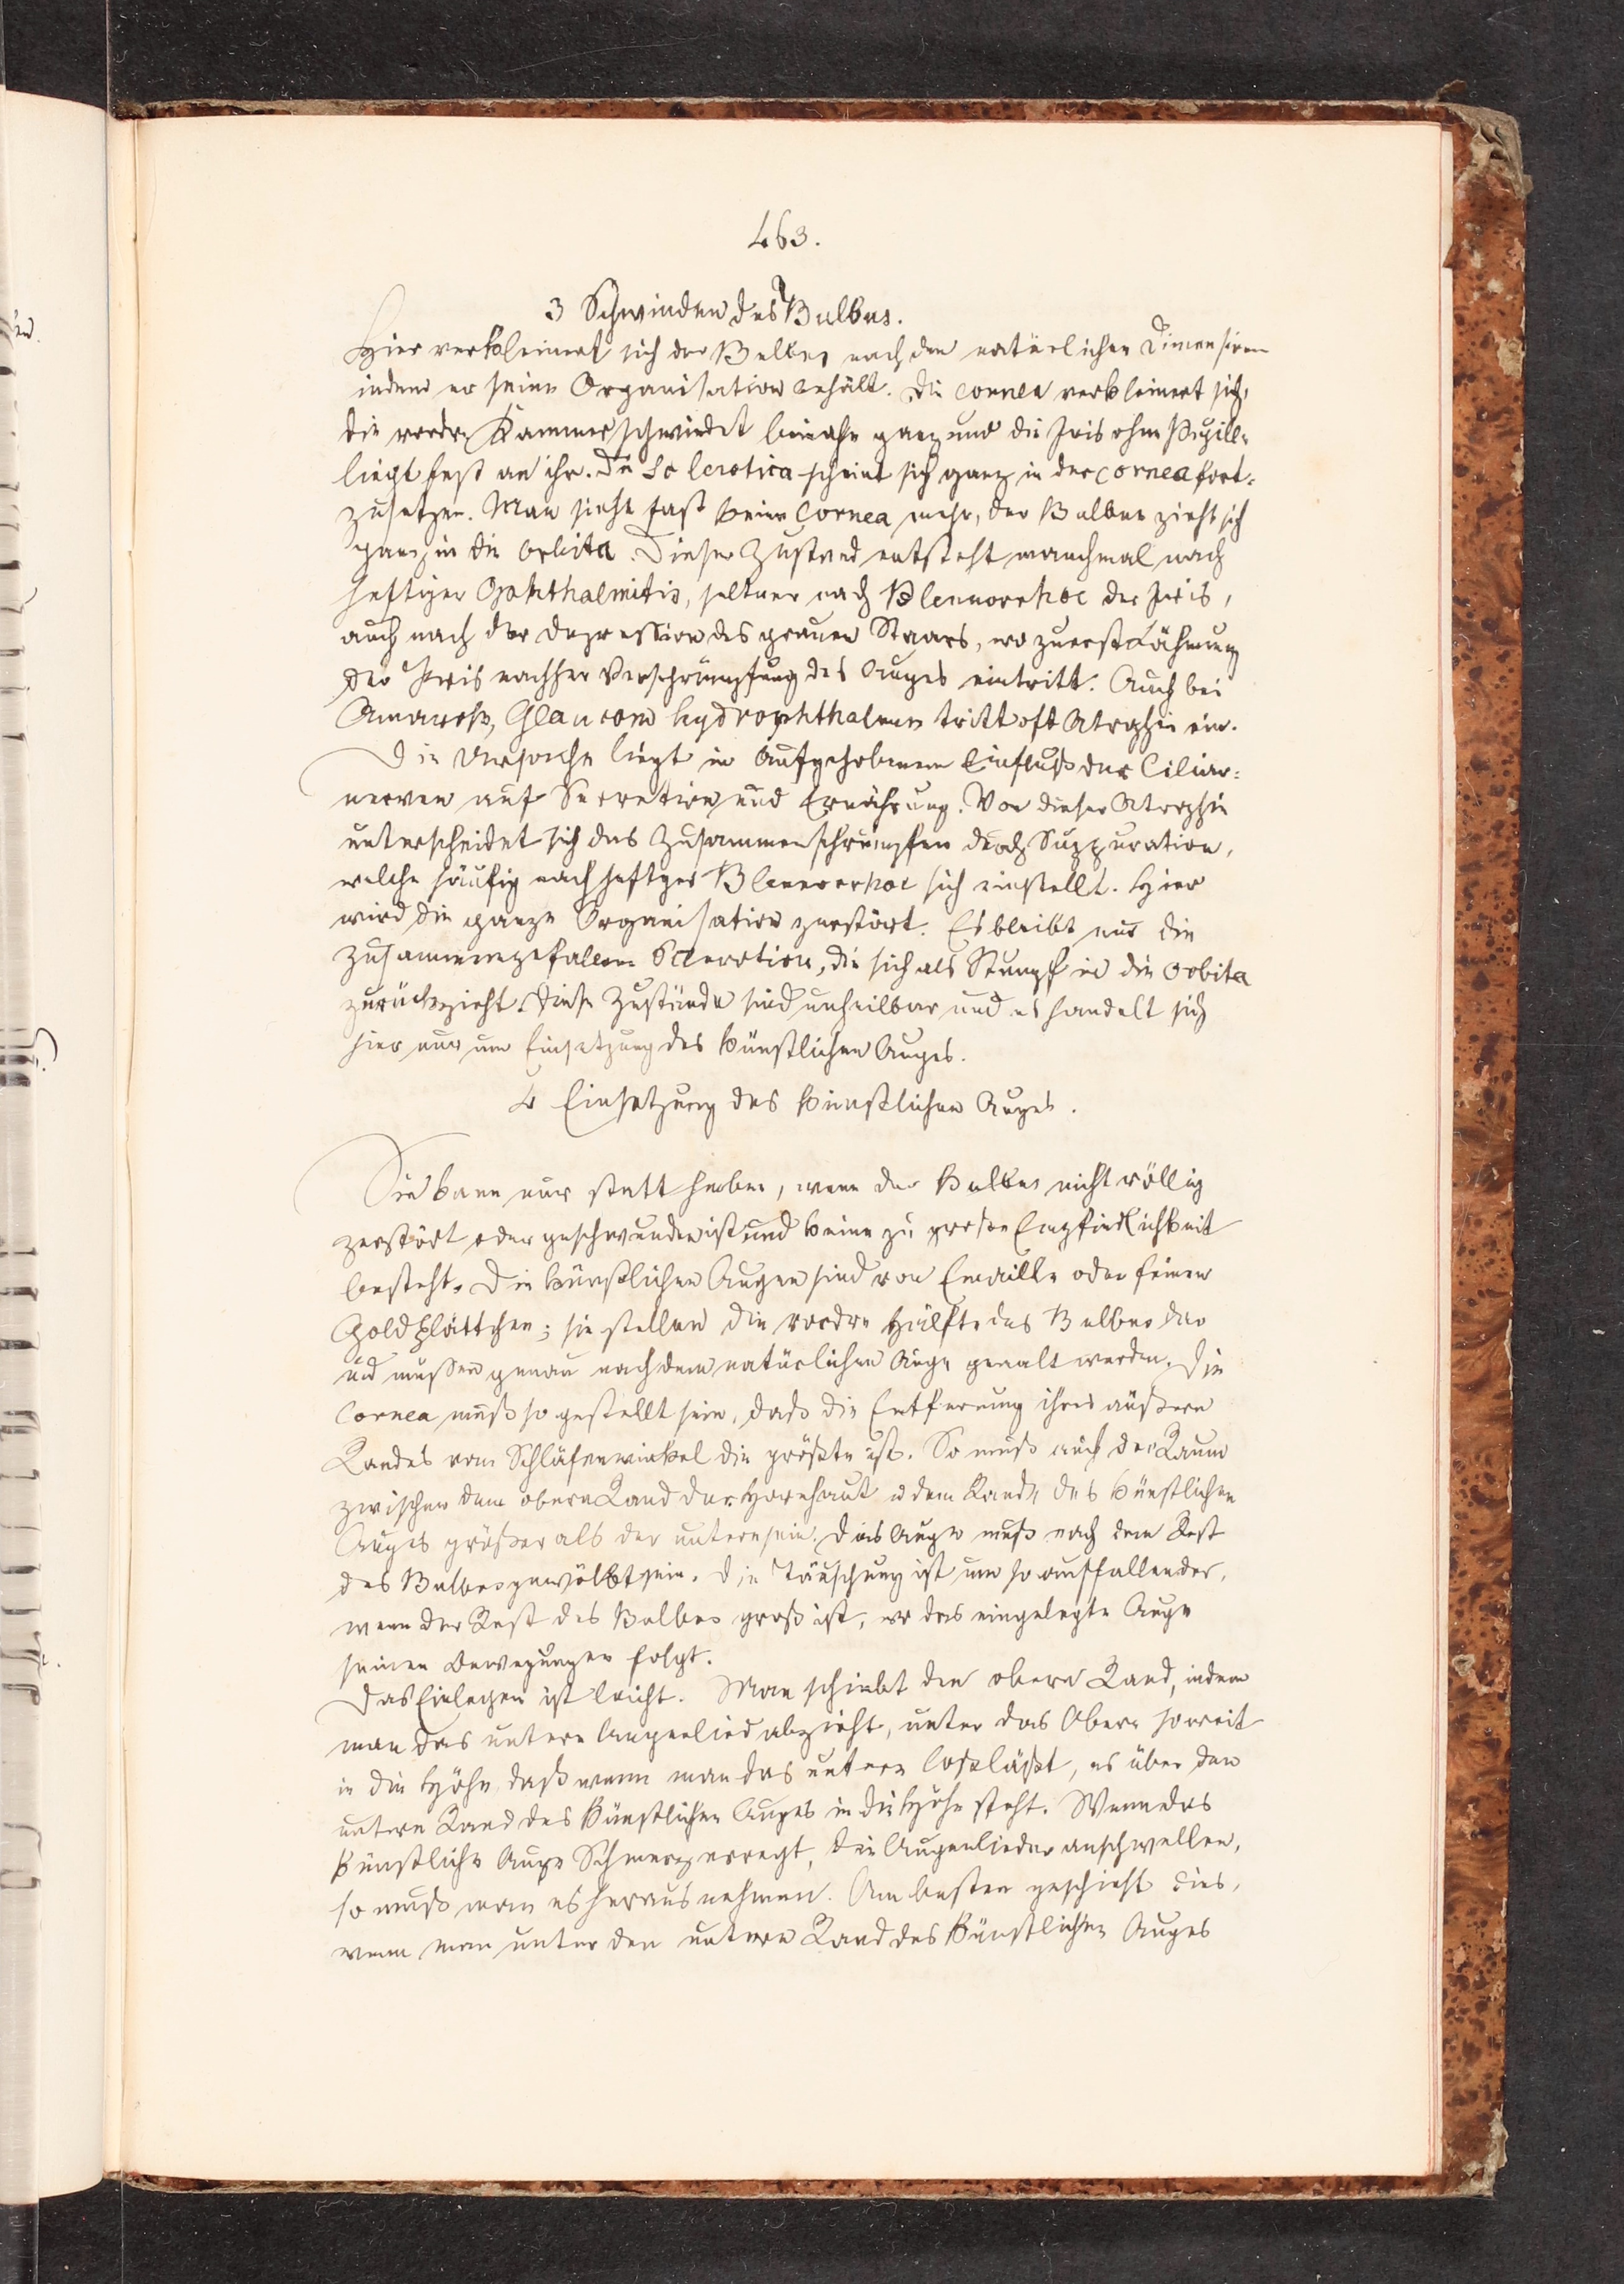 463.
3 Schwinden des Bulbus.
Hier verkleinert sich der Bulbus nach den natürlichen Dimensionen
indem er seine Organisation behält. Die Cornea verkleinert sich,
die vordre Kammer schwindet beinahe ganz und die Iris ohne Pupille
liegt fest an ihr. Die Sclerotica scheint sich ganz in der Cornea fort=
zusetzen. Man sieht fast keine Cornea mehr, der Bulbus zieht sich
ganz in die Orbita. Dieser Zustand entsteht manchmal nach
heftiger Ophthalmitis, seltner nach Blennorrhoe der Iris,
auch nach der Depression des grauen Staars, wo zuerst Lähmung
der Iris nachher Verschrumpfung des Auges eintritt. Auch bei
Amaurose, Glaucom hydrophthalmus tritt oft Atrophie ein.
Die Ursache liegt in aufgehobenem Einfluß der Ciliar=
nerven auf Secretion und Ernährung. Von dieser Atrophie
unterscheidet sich das Zusammenschrumpfen durch Suppuration,
welche häufig nach heftger Blennorrhoe sich einstellt. Hier
wird die ganze Organisation zerstört. Es bleibt nur die
zusammengefallene Sclerotica, die sich als Stumpf in die Orbita
zurückzieht. Diese Zustände sind unheilbar und es handelt sich
hier nur um Einsetzung des künstlichen Auges.
4 Einsetzung des künstlichen Auges.
Sie kann nur statt haben, wenn der Bulbus nicht völlig
zerstört oder geschwunden ist und keine zu große Empfindlichkeit
besteht. Die künstlichen Augen sind von Emaille oder feinen
Goldplättchen; sie stellen die vordre Hälfte des Bulbus dar
und müssen genau nach dem natürlichen Auge gemalt werden. Die
Cornea muß so gestellt sein, daß die Entfernung ihres äußern
Randes vom Schläfenwinkel die größte ist. So muß auch der Raum
zwischen dem obern Rand der Hornhaut u dem Rande des künstlichen
Auges größer als der untere sein. Das Auge muß nach dem Rest
des Bulbus gewölbt sein. Die Täuschung ist um so auffallender,
wenn der Rest des Bulbus groß ist, wo das eingelegte Auge
seinen Bewegungen folgt.
Das Einlegen ist leicht. Man schiebt den obern Rand, indem
man das untere Augenlied abzieht, unter das Obere so weit
in die Höhe, daß wenn man das untere losläßt, es über den
untern Rand des künstlichen Auges in die Höhe steht. Wenn das
künstliche Auge Schmerz erregt, die Augenlieder anschwellen,
so muß man es herausnehmen. Am besten geschieht dies,
wenn man unter den untern Rand des künstlichen Auges